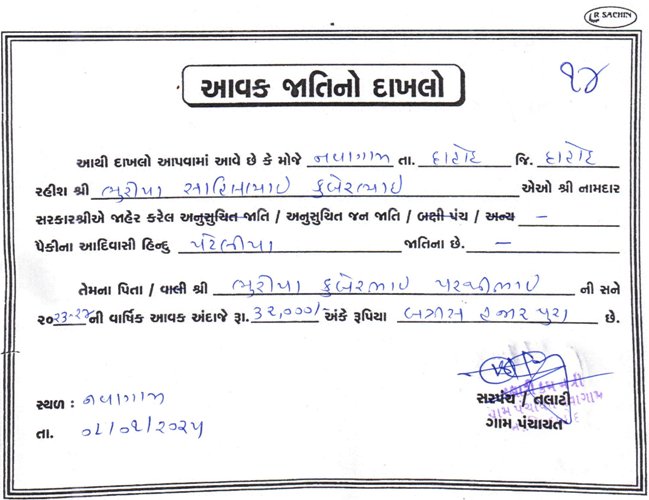 R SACHIN
આવક જાતિનો દાખલો
૧૪
આથી દાખલો આપવામાં આવે છે કે મોજે નવાગામ તા. દાહોદ જિ. દાહોદ
રહીશ શ્રી ભુરીયા કુબેરભાઇ એઓ શ્રી નામદાર
સરકારશ્રીએ જાહેર કરેલ અનુસુચિત જાતિ / અનુસુચિત જન જાતિ / બક્ષી પંચ / અન્ય –
પૈકીના આદિવાસી હિન્દુ પટેલીયા જાતિના છે. –
તેમના પિતા / વાલી શ્રી ભુરીયા કુબેરભાઇ ની સને
૨૦૨૩-૨૪ની વાર્ષિક આવક અંદાજે રૂા. ૩૨,૦૦૦/- અંકે રૂપિયા બત્રીસ હજાર પુરા છે.
સ્થળ : નવાગામ
તા. ૦૮/૦૧/૨૦૨૫
સરપંચ / તલાટી
ગ્રામ પંચાયત